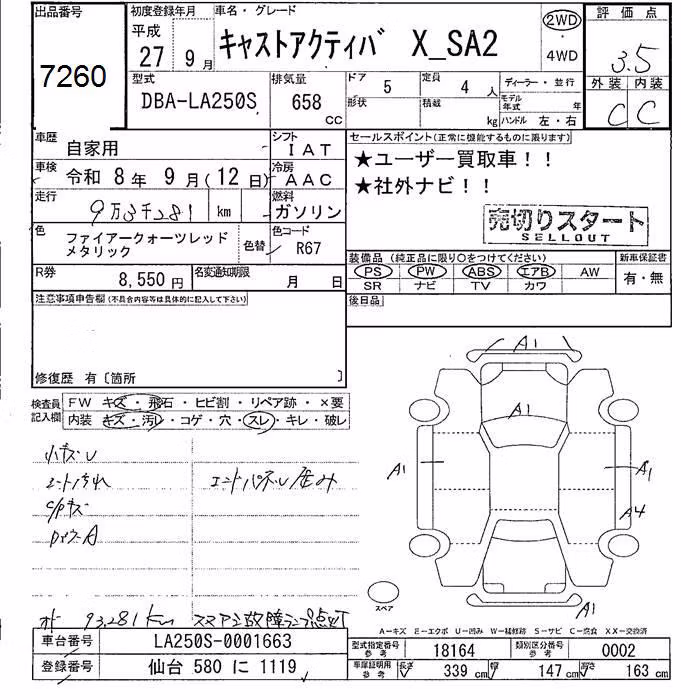 出品番号 初度登録年月 車名・グレード 評価点
7260 平成 27年 9月 キャストアクティバ X_SA2 2WD・4WD 3.5
外装 内装
C C
型式 排気量 ドア 5 定員 4人 ディーラー・並行
DBA-LA250S 658cc 形状 積載 kg モデル年式 年 ハンドル 左・右
車歴 自家用 シフト IAT セールスポイント(正常に機能するものに限ります)
車検 令和 8年 9月(12日) 冷房 AAC ★ユーザー買取車!!
★社外ナビ!!
走行 9万3千281 km 燃料 ガソリン
売切りスタート
SELLOUT
色 ファイアークォーツレッドメタリック 色替 色コード R67
装備品(純正品に限り○をつけてください) 新車保証書
PS PW ABS エアB AW 有・無
SR ナビ TV カワ
R券 8,550円 名変通知期限 月 日
後日品
注意事項申告欄(不具合内容等は具体的に記入して下さい)
修復歴 有〔箇所 〕
検査員記入欄 FW キズ・飛石・ヒビ割・リペア跡・×要
内装 キズ・汚レ・コゲ・穴・スレ・キレ・破レ
A1
A1
A1 A1
A4
A1
小キズU
シート汚れ エンドパネル歪み
C/Pキズ
スペア
オド 93,281km スマアシ故障ランプ点灯
A-キズ E-エクボ U-凹み W-補修跡 S-サビ C-腐食 XX-交換済
車台番号 LA250S-0001663
登録番号 仙台 580 に 1119
型式指定番号 参考 18164 類別区分番号 参考 0002
車庫証明用 参考 長さ 339cm 幅 147cm 高さ 163cm